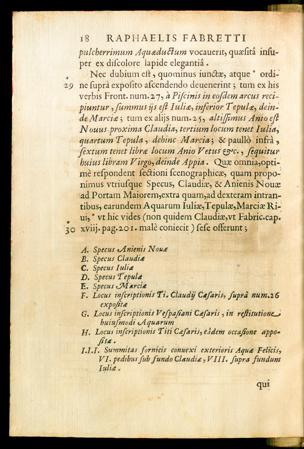 18 RAPHAELIS FABRETTI
pulcherrimum Aquæductum vocauerit, quæsitâ insu-
per ex discolore lapide elegantiâ.
Nec dubium est, quominus iunctæ, atque * ordi-
29 ne suprà exposito ascendendo deuenerint; tum ex his
verbis Front. num.27, à Piscinis in eosdem arcus reci-
piuntur, summus ijs est Iuliæ, inferior Tepulæ, dein-
de Marciæ; tum ex alijs num.25, altissimus Anio est
Nouus proxima Claudia, tertium locum tenet Iulia,
quartum Tepula, dehinc Marcia; & paullò infrà,
sextum tenet libræ locum Anio Vetus &c., sequitur
huius libram Virgo, deinde Appia. Quæ omnia, opti-
mè respondent sectioni scenographicæ, quam propo-
nimus vtriusque Specus, Claudiæ, & Anienis Nouæ
ad Portam Maiorem, extra quam, ad dexteram intran-
tibus, earundem Aquarum Iuliæ, Tepulæ, Marciæ Ri-
ui, * vt hic vides (non quidem Claudiæ, vt Fabric. cap.
30 xviij. pag.201. malè coniecit) sese offerunt;
A. Specus Anienis Nouæ
B. Specus Claudiæ
C. Specus Iuliæ
D. Specus Tepulæ
E. Specus Marciæ
F. Locus inscriptionis Ti. Claudij Cæsaris, suprà num.26
expositæ
G. Locus inscriptionis Vespasiani Cæsaris, in restitutione
huiusmodi Aquarum
H. Locus inscriptionis Titi Cæsaris, eâdem occasione appo-
sitæ.
I.I.I. Summitas fornicis conuexi exterioris Aquæ Felicis,
VI. pedibus sub fundo Claudiæ, VIII. supra fundum
Iuliæ.
qui